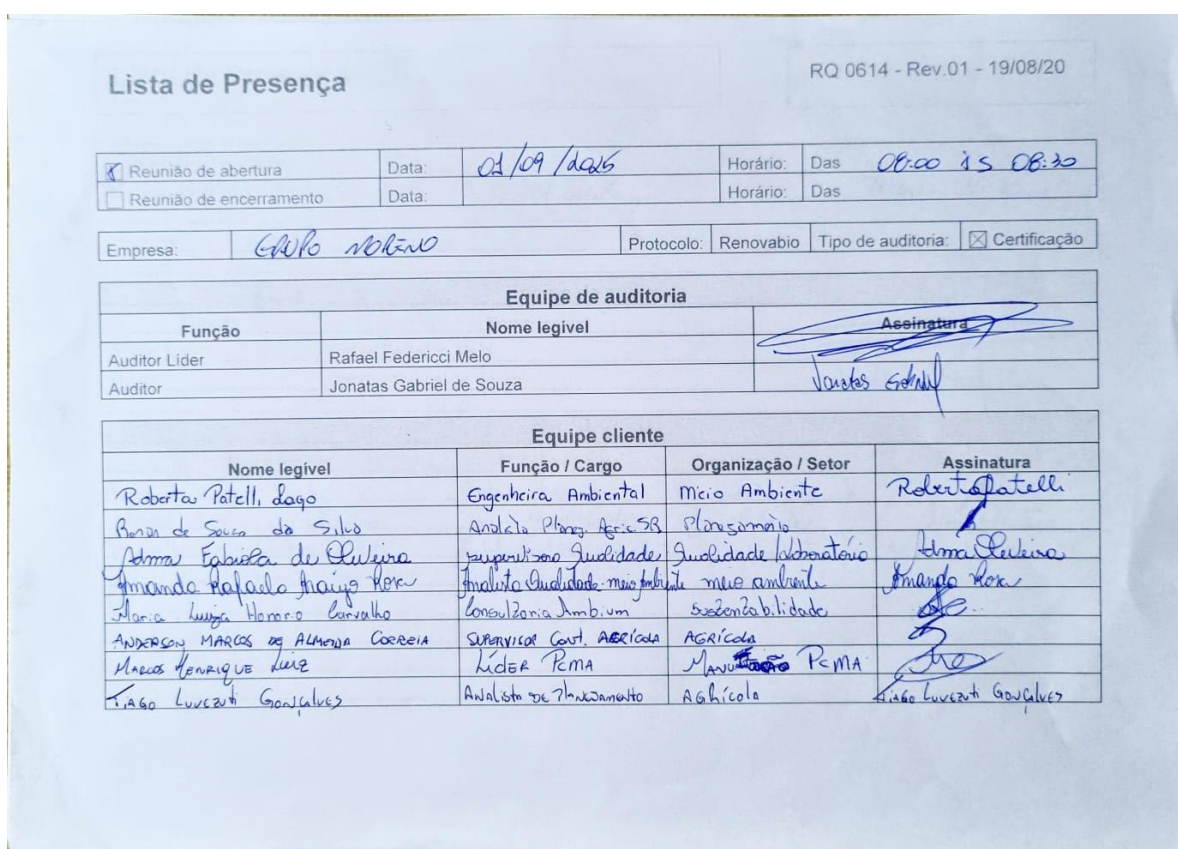 Lista de Presença
RQ 0614 - Rev.01 - 19/08/20
Reunião de abertura Data: 01/09/2025 Horário: Das 08:00 às 08:30
Reunião de encerramento Data: Horário: Das
Empresa: GRUPO MORENO Protocolo: Renovabio Tipo de auditoria: Certificação
Equipe de auditoria
Função Nome legível Assinatura
Auditor Lider Rafael Federicci Melo
Auditor Jonatas Gabriel de Souza Jonatas Gabriel
Equipe cliente
Nome legível Função / Cargo Organização / Setor Assinatura
Roberta Patelli Lago Engenheira Ambiental Meio Ambiente Roberta Patelli
de Souza da Silva Analista Planej. Agric. SR Planejamento
Adma Fabiola de Oliveira supervisora Qualidade Qualidade / laboratório Adma Oliveira
Amanda Rafaela Araújo Rosa Analista Qualidade - meio Ambiente meio ambiente Amanda Rosa
Maria Luiza Honorio Carvalho Consultoria Ambium Sustentabilidade
ANDERSON MARCOS DE ALMEIDA CORREIA SUPERVISOR Cont. AGRÍCOLA AGRÍCOLA
MARCOS HENRIQUE Luiz LíDER PCMA PCMA
TIAGO Luvezuti Gonçalves Analista DE Planejamento AGRícola TIAGO Luvezuti Gonçalves